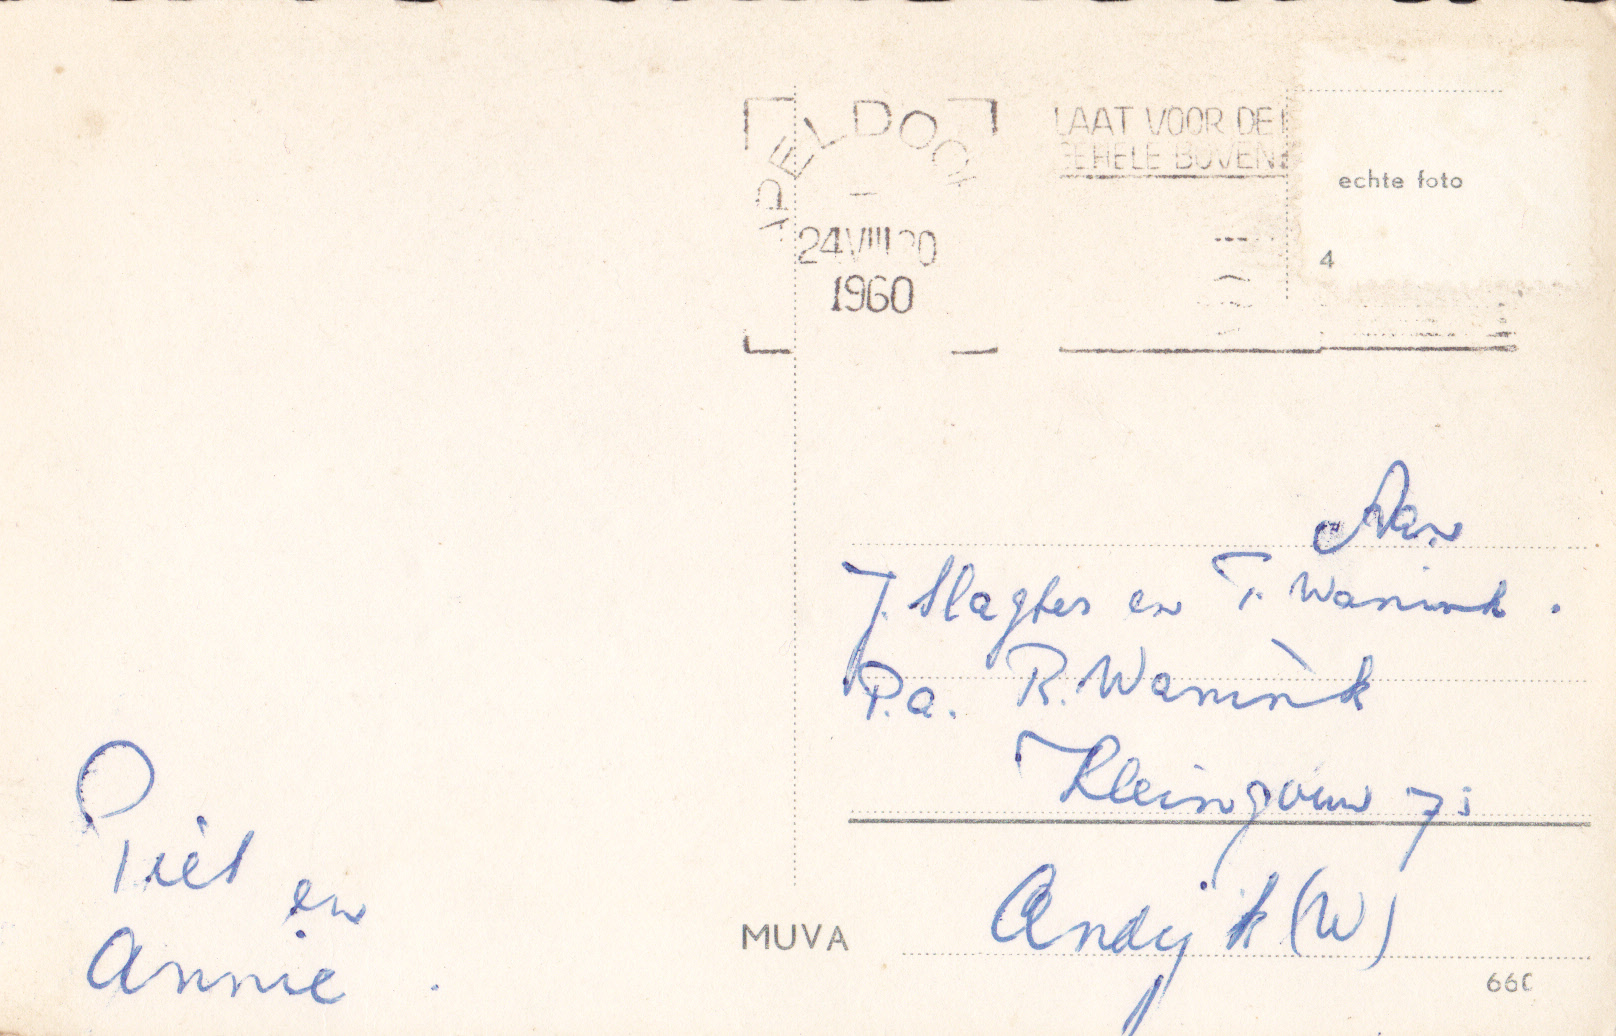 APELDOORN
24 VIII 20
1960
LAAT VOOR DE
GEHELE BOVEN
echte foto
4
Aan
J. Slagter en T. Wanink.
P.a. R. Wanink
Kleingouw
Andijk (W)
Piet
en
Annie.
MUVA